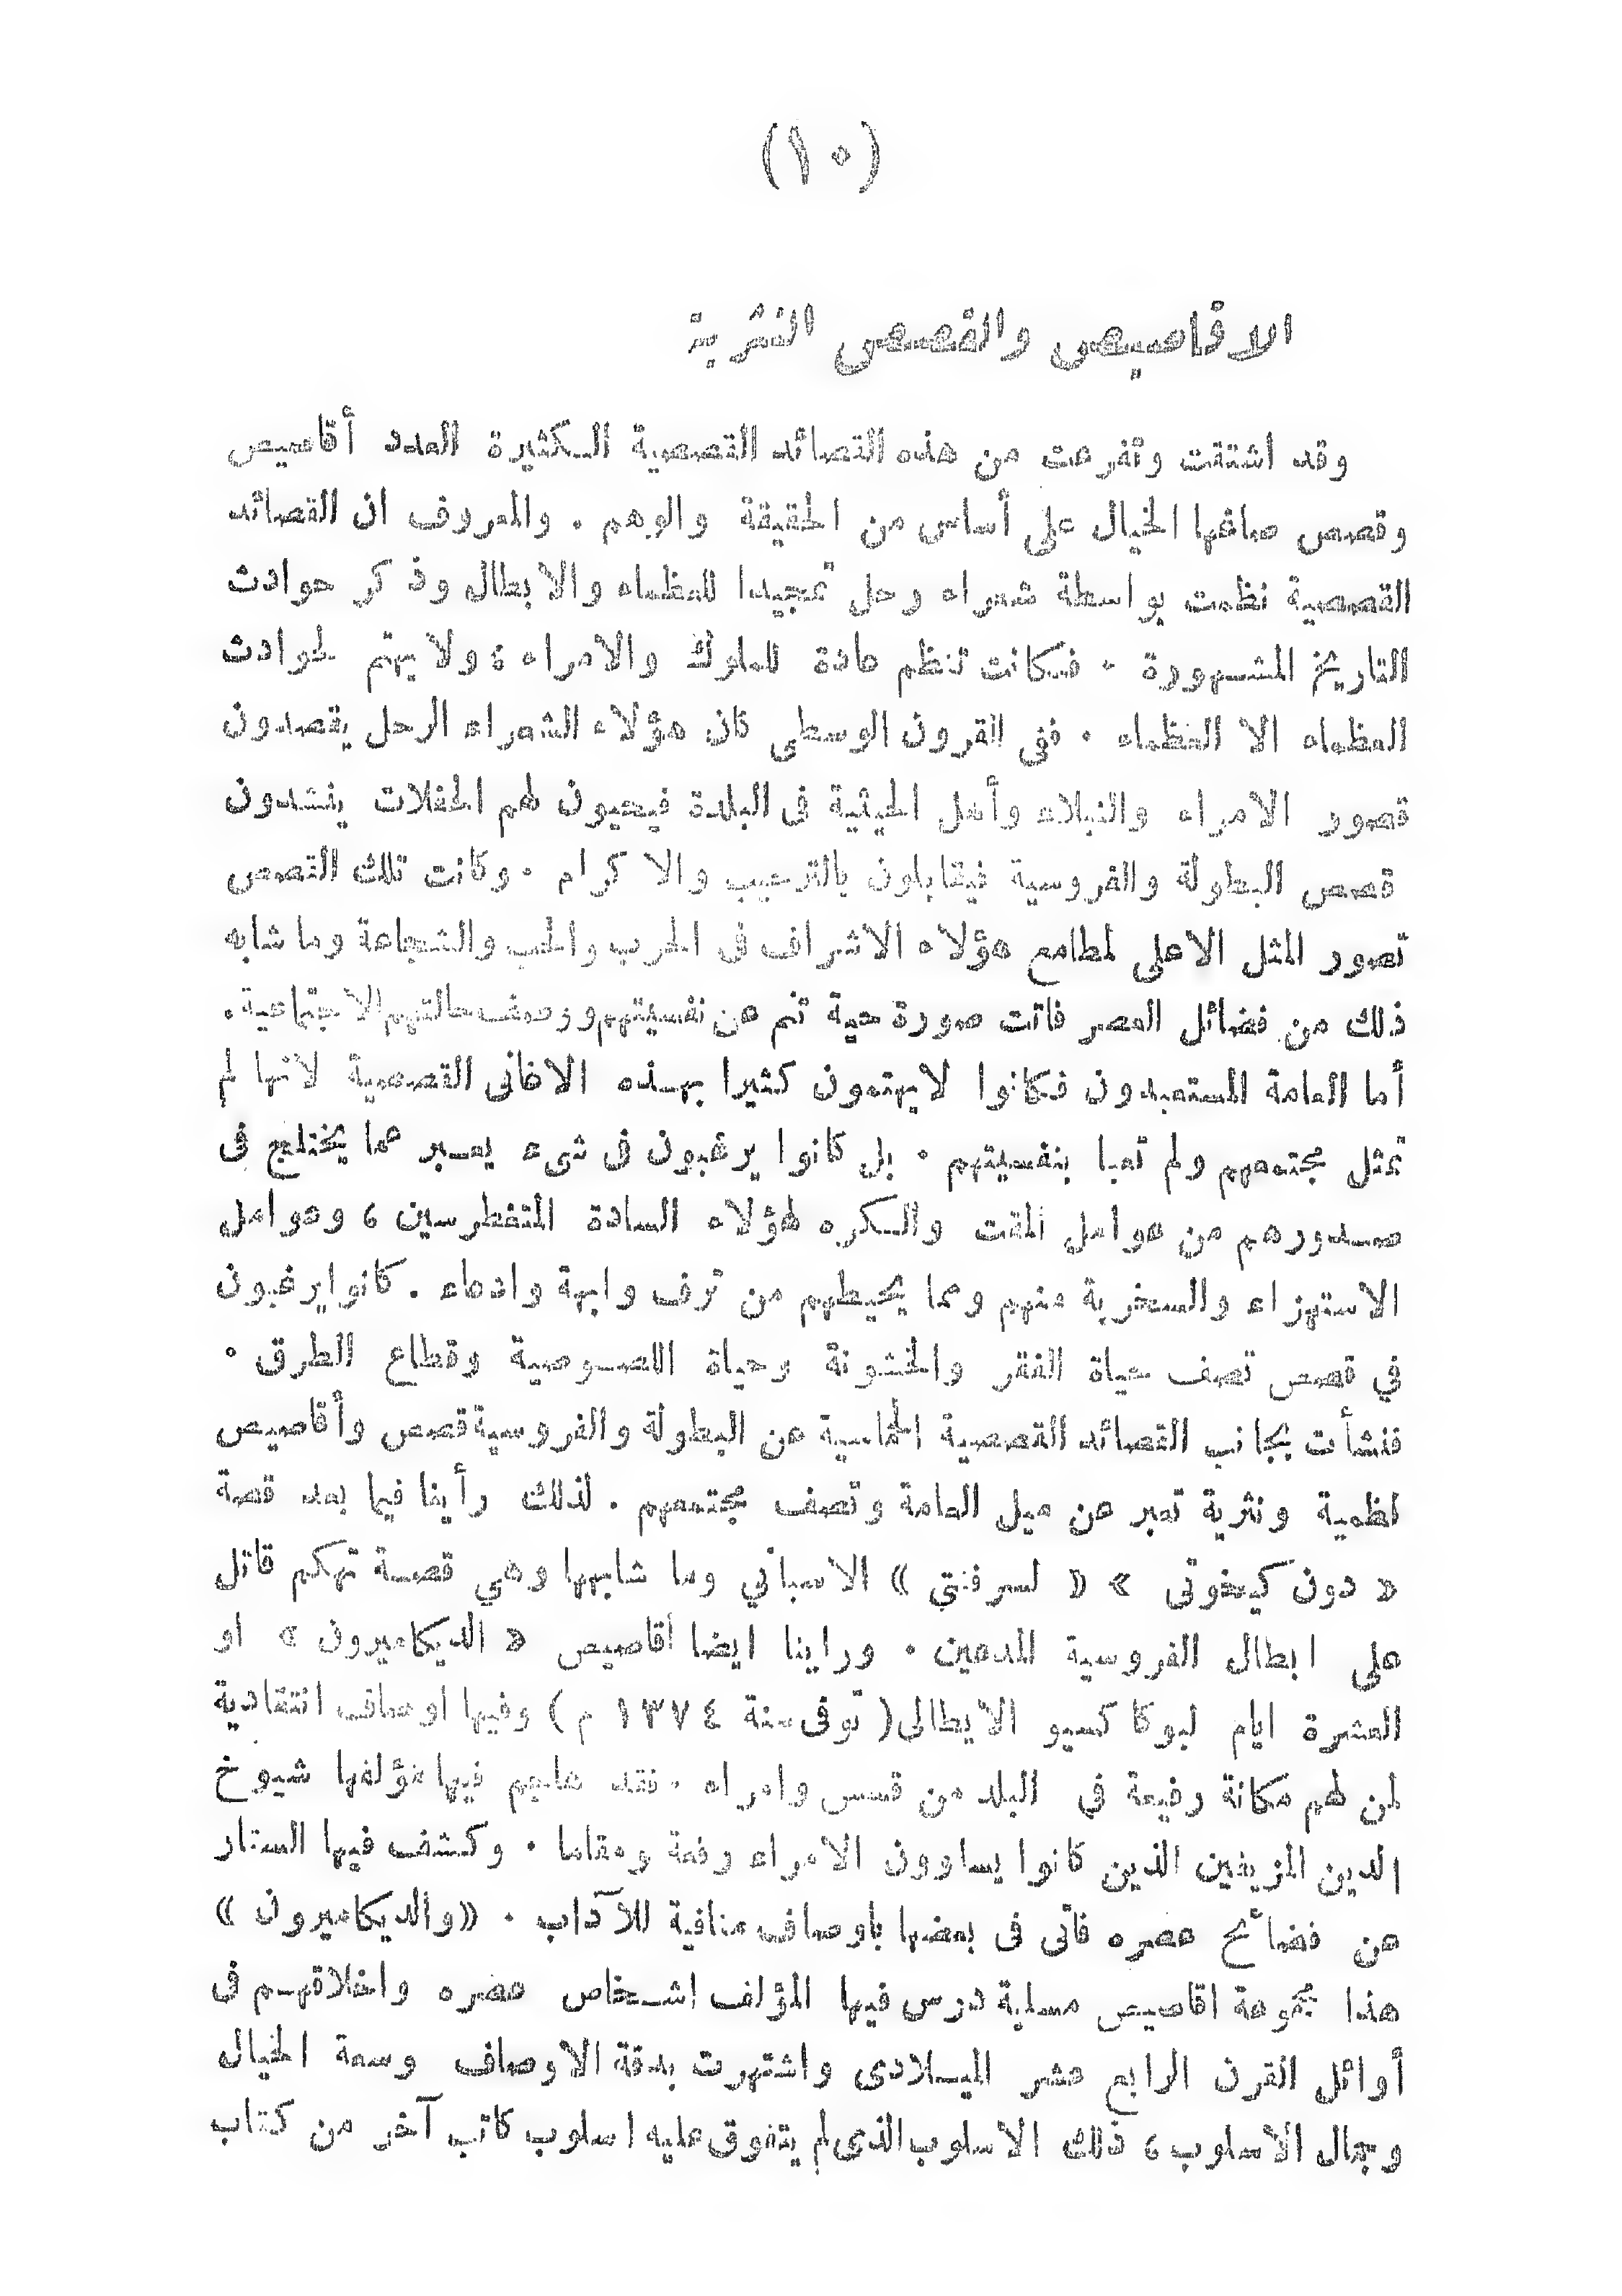 (١٠)
الاقاصيص والقصص النثرية
وقد اشتقت وتفرعت من هذه القصائد القصصية الكثيرة العدد أقاصيص
وقصص صاغها الخيال على أساس من الحقيقة والوهم . والمعروف ان القصائد
القصصية نظمت بواسطة شعراء رحل تمجيدا للعظماء والابطال وذكر حوادث
التاريخ المشهورة . فكانت تنظم عادة للملوك والامراء ؛ ولا يهتم لحوادث
العظماء الا العظماء . ففى القرون الوسطى كان هؤلاء الشعراء الرحل يقصدون
قصور الامراء والنبلاء وأهل الحيثية فى البلدة فيحيون لهم الحفلات ينشدون
قصص البطولة والفروسية فيقابلون بالترحيب والاكرام . وكانت تلك القصص
تصور المثل الاعلى لمطامع هؤلاء الاشراف فى الحرب والحب والشجاعة وما شابه
ذلك من فضائل العصر فاتت صورة حية تنم عن نفسيتهم ووصف حالتهم الاجتماعية .
أما العامة المستعبدون فكانوا لا يهتمون كثيرا بهذه الاغانى القصصية لانها لم
تمثل مجتمعهم ولم تعبا بنفسيتهم . بل كانوا يرغبون فى شىء يعبر عما يختلج فى
صدورهم من عوامل المقت والكره لهؤلاء السادة المتغطرسين ، وعوامل
الاستهزاء والسخرية منهم ومما يحيطهم من ترف وابهة وادعاء . كانوا يرغبون
في قصص تصف حياة الفقر والخشونة وحياة اللصوصية وقطاع الطرق .
فنشأت بجانب القصائد القصصية الحماسية عن البطولة والفروسية قصص وأقاصيص
نظمية ونثرية تعبر عن ميل العامة وتصف مجتمعهم . لذلك رأينا فيما بعد قصة
« دون كيخوتى » « لسرفنتي » الاسباني وما شابهها وهي قصة تهكم قاتل
على ابطال الفروسية المدعين . وراينا ايضا اقاصيص « الديكاميرون » او
العشرة ايام لبوكاكسيو الايطالى ( توفى سنة ١٣٧٤ م ) وفيها اوصاف انتقادية
لمن لهم مكانة رفيعة في البلد من قسس وامراء . فقد هاجم فيها مؤلفها شيوخ
الدين المزيفين الذين كانوا يساوون الامراء رفعة ومقاما . وكشف فيها الستار
عن فضائح عصره فاتى فى بعضها باوصاف منافية للآداب . «والديكاميرون »
هذا مجموعة اقاصيص مسلية درس فيها المؤلف اشخاص عصره واخلاقهم فى
أوائل القرن الرابع عشر الميلادى واشتهرت بدقة الاوصاف وسعة الخيال
وجمال الاسلوب ، ذلك الاسلوب الذى لم يتفوق عليه اسلوب كاتب آخر من كتاب